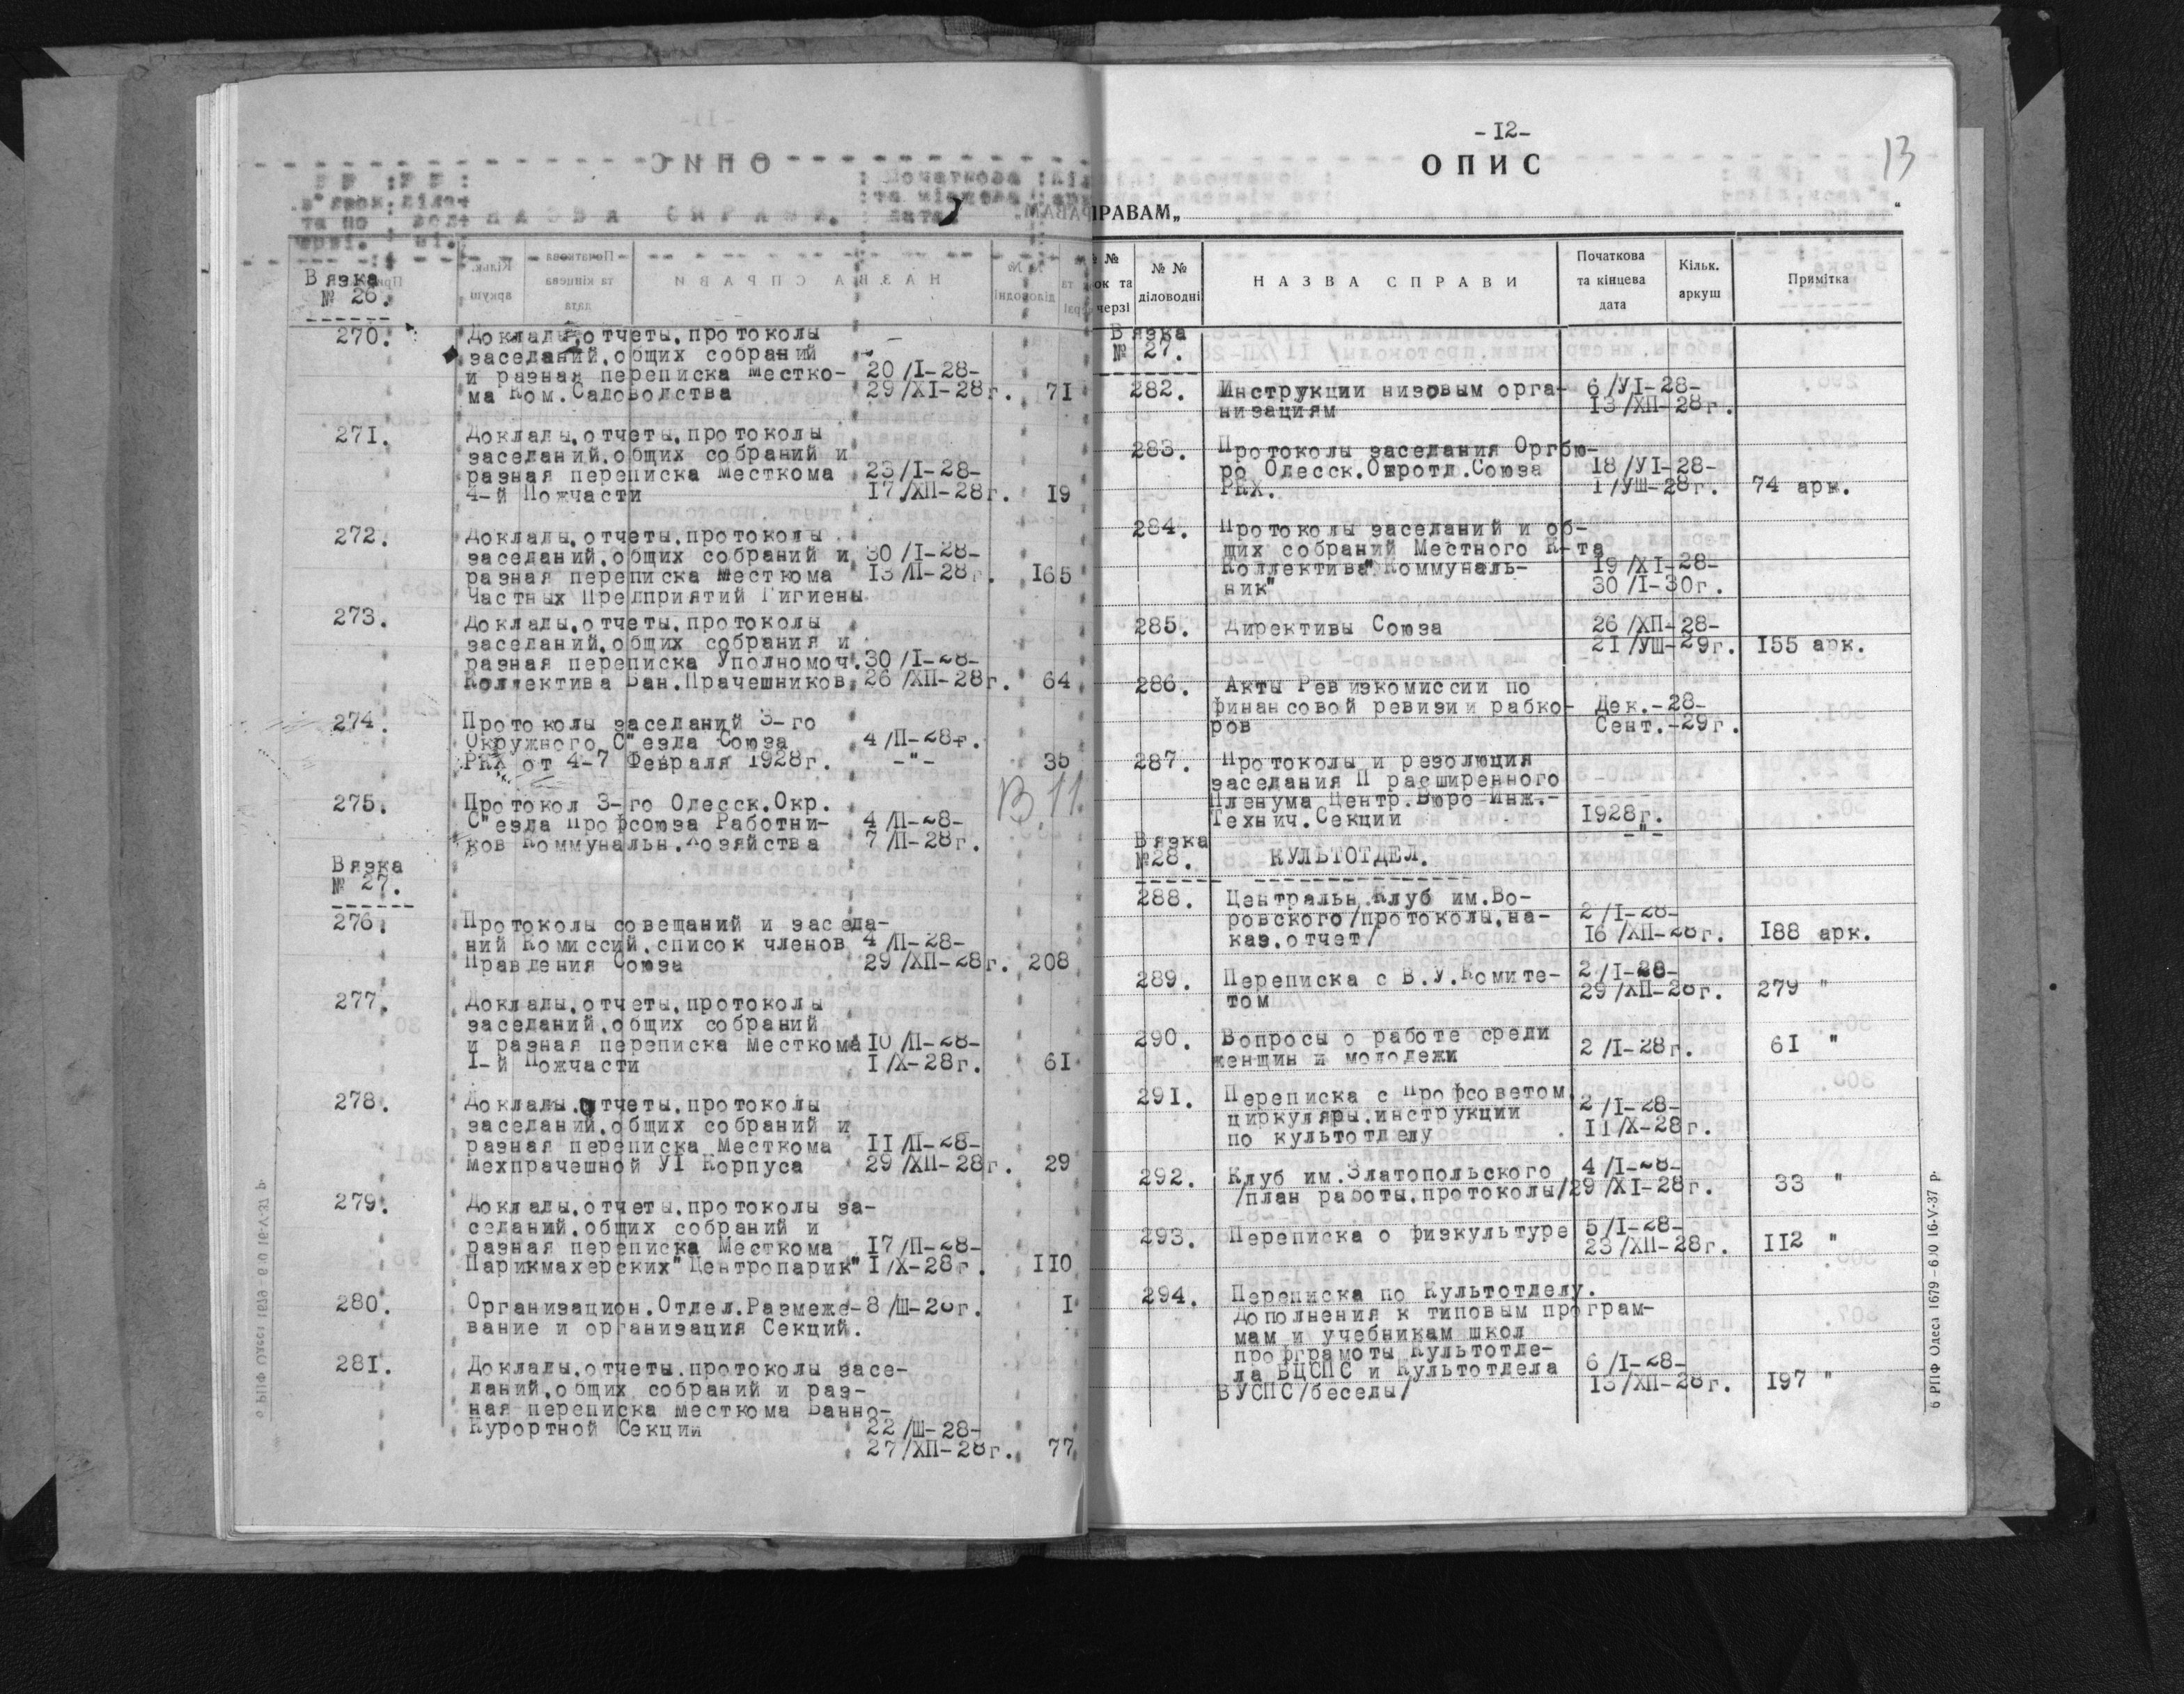 Вязка
№ 26.
270. Доклады, отчеты, протоколы
заседаний, общих собраний
и разная переписка Местко- 20/I-28-
ма Ком. Садоводства 29/XI-28г. 71
271. Доклады, отчеты, протоколы
заседаний, общих собраний и
разная переписка Месткома 23/I-28-
4-й Пожчасти 17/ХП-28г. 19
272. Доклады, отчеты, протоколы
заседаний, общих собраний и 30/I-28-
разная переписка Месткома 13/П-28г. 165
Частных Предприятий Гигиены
273. Доклады, отчеты, протоколы
заседаний, общих собрания и
разная переписка Уполномоч. 30/I-28-
Коллектива Бан. Прачешников 26/ХП-28г. 64
274. Протоколы заседаний 3-го
Окружного С"езда Союза 4/П-28г.
РКХ от 4-7 Февраля 1928г. -"- 35
275. Протокол 3-го Одесск. Окр.
С"езда Профсоюза Работни- 4/П-28-
ков Коммунальн. Хозяйства 7/П-28г.
Вязка
№ 27.
276. Протоколы совещаний и заседа-
ний Комиссий, список членов 4/П-28-
Правления Союза 29/ХП-28г. 208
277. Доклады, отчеты, протоколы
заседаний, общих собраний
и разная переписка Месткома 10/П-28-
I-й Пожчасти I/X-28г. 61
278. Доклады, отчеты, протоколы
заседаний, общих собраний и
разная переписка Месткома II/П-28-
Мехпрачешной УI Корпуса 29/ХП-28г. 29
279. Доклады, отчеты, протоколы за-
седаний, общих собраний и
разная переписка Месткома 17/П-28-
Парикмахерских "Центропарик" I/X-28г. 110
280. Организацион. Отдел. Размеже- 8/Ш-28г. I
вание и организация Секций.
281. Доклады, отчеты, протоколы засе-
даний, общих собраний и раз-
ная переписка месткома Банно-
Курортной Секции 22/Ш-28-
27/ХП-28г. 77
-12-
13
ОПИС
ПРАВАМ „ “
№ № № Початкова Кільк.
ок та № № НАЗВА СПРАВИ та кінцева аркуш Примітка
черзі діловодні дата
Вязка
№ 27.
282. Инструкции низовым орга- 6/УI-28-
низациям 13/ХП-28г.
283. Протоколы заседания Оргбю-
ро Одесск. Окротд. Союза 18/УI-28-
РКХ. I/УШ-28г. 74 арк.
284. Протоколы заседаний и об-
щих собраний Местного К-та
Коллектива "Коммуналь- 19/XI-28-
ник" 30/I-30г.
285. Директивы Союза 26/ХП-28-
21/УШ-29г. 155 арк.
286. Акты Ревизкомиссии по
финансовой ревизии рабко- Дек.-28-
ров Сент.-29г.
287. Протоколы и резолюция
заседания П расширенного
Пленума Центр. Бюро Инж.-
Технич. Секции 1928г.
-"-
Вязка
№28. КУЛЬТОТДЕЛ.
288. Центральн. Клуб им. Во-
ровского /протоколы, на- 2/I-28-
каз, отчет/ 16/ХП-28г. 188 арк.
289. Переписка с В.У.Комите- 2/I-28-
том 29/ХП-28г. 279 "
290. Вопросы о работе среди
женщин и молодежи 2/I-28г. 61 "
291. Переписка с Профсоветом,
циркуляры, инструкции 2/I-28-
по культотделу II/X-28г.
292. Клуб им. Златопольского 4/I-28-
/план работы, протоколы/ 29/XI-28г. 33 "
293. Переписка о физкультуре 5/I-28-
23/ХП-28г. 112 "
294. Переписка по Культотделу.
Дополнения к типовым програм-
мам и учебникам школ
профграмоты Культотде-
ла ВЦСПС и Культотдела 6/I-28-
ВУСПС /беседы/ 13/ХП-28г. 197 "